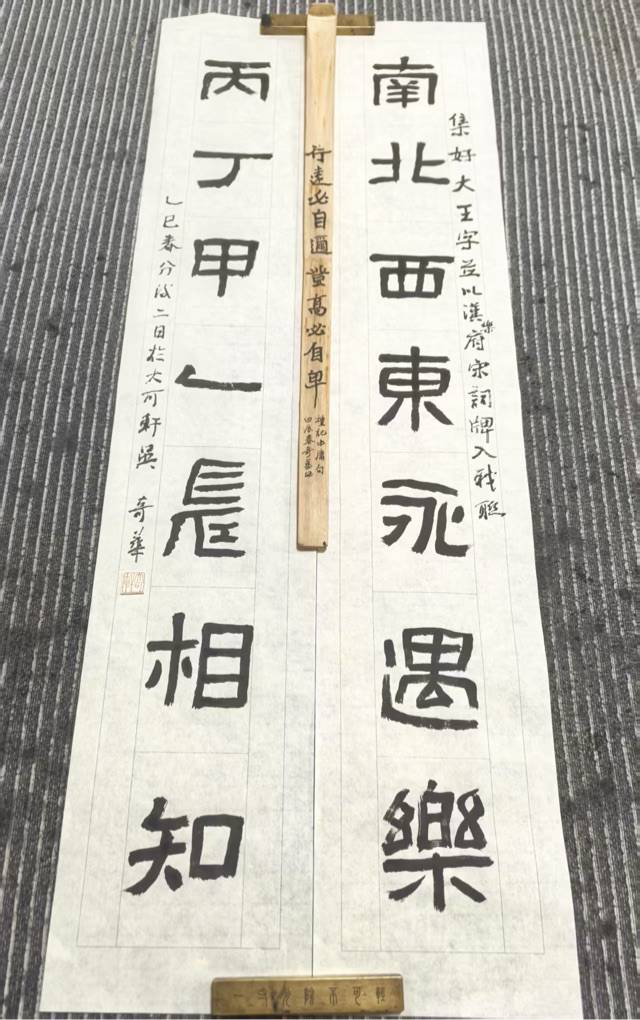 南北西東永遇樂
集好大王字並以漢樂府宋詞牌入我聯
丙丁甲乙長相知
乙巳春分後二日於大可軒吳奇華
行遠必自邇登高必自卑
禮記中庸句
一寸光陰不可輕